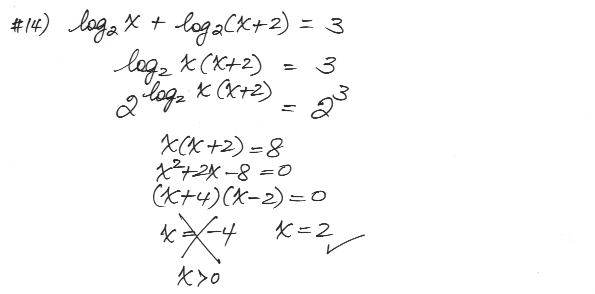 #14) log₂ x + log₂(x+2) = 3
log₂ x(x+2) = 3
2^(log₂ x(x+2)) = 2³
x(x+2) = 8
x²+2x-8 = 0
(x+4)(x-2) = 0
x = -4 x = 2 ✓
x>0